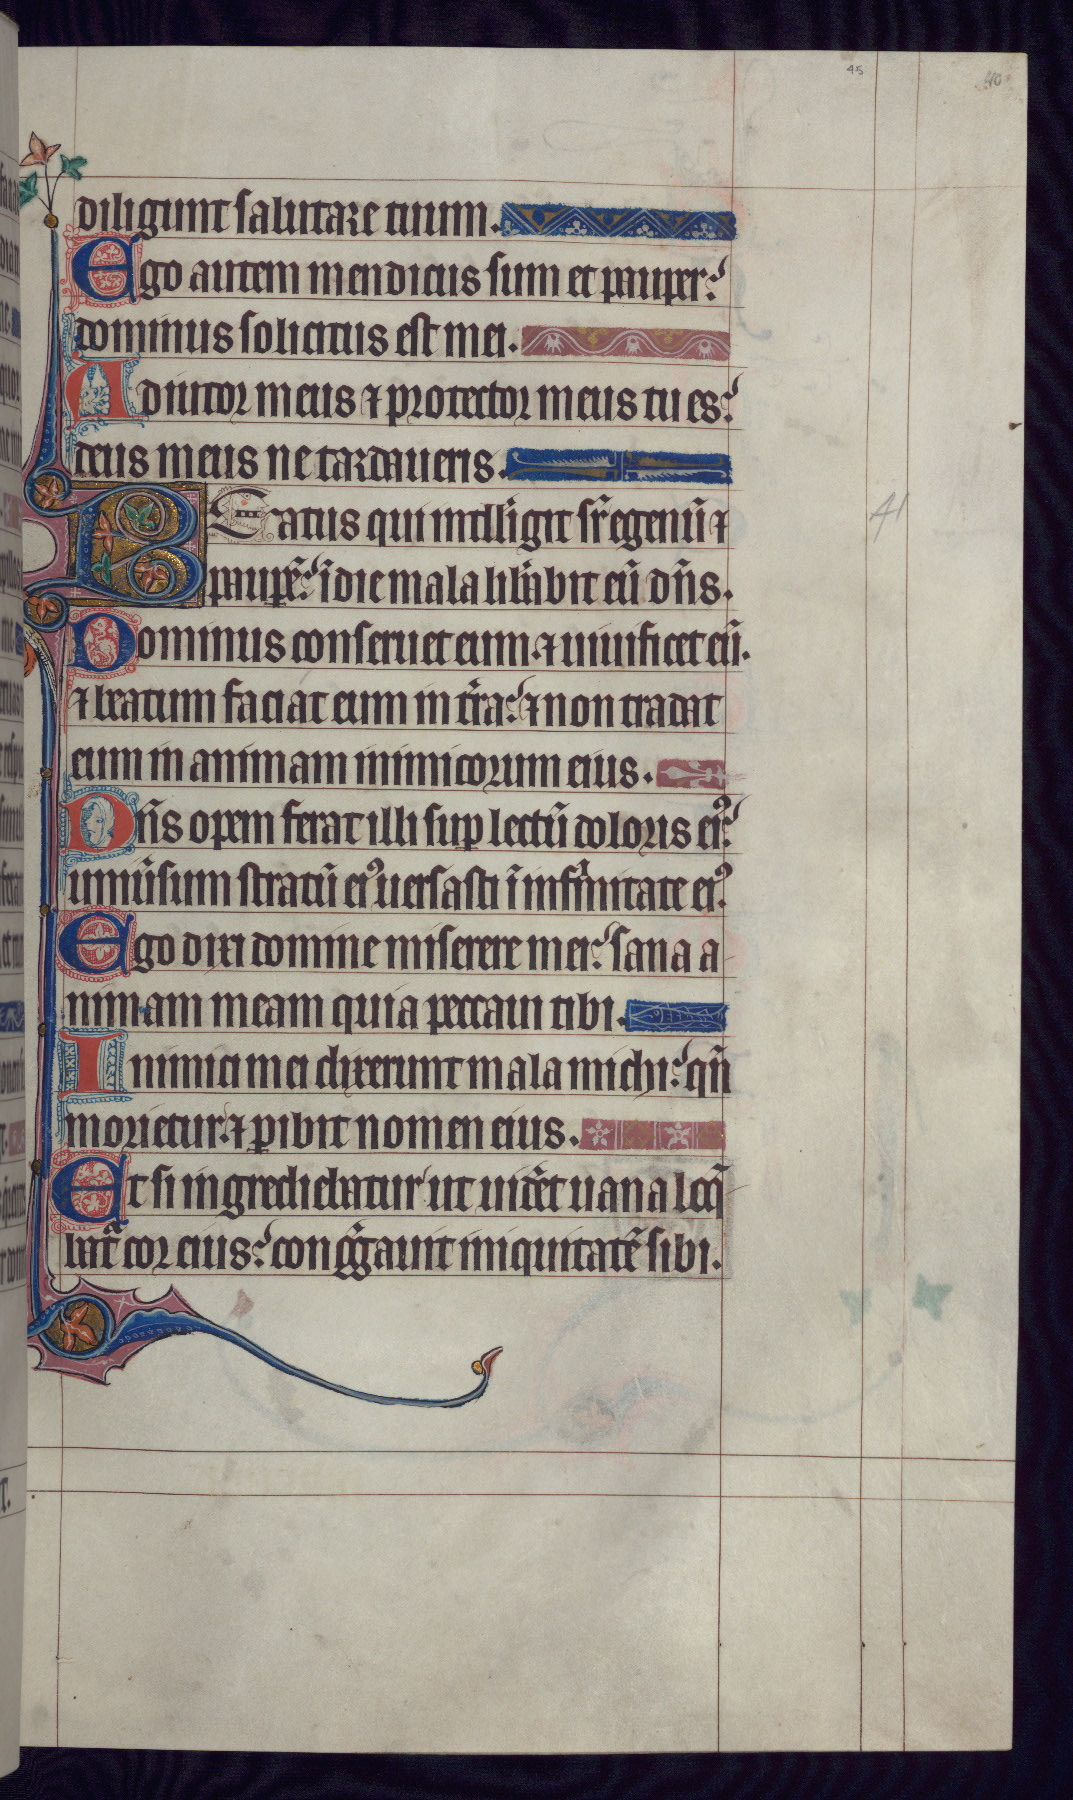 45
40
diligunt salutare tuum.
Ego autem mendicus sum et pauper:
dominus solicitus est mei.
Adiutor meus ⁊ protector meus tu es:
deus meus ne tardaueris.
BEatus qui intelligit sr̄ egenū ⁊
paupeꝝ̄: ī die mala lib̄abit eū dn̄s.
Dominus conseruet eum ⁊ uiuificet eū.
⁊ beatum faciat eum in tr̄a: ⁊ non tradat
eum in animam inimicorum eius.
Dn̄s opem ferat illi suꝑ lectū doloris eiꝰ:
uniūsum stratū eiꝰ uersasti ī infirmitate eiꝰ.
Ego dixi domine miserere mei: sana a-
nimam meam quia peccaui tibi.
Inimici mei dixerunt mala michi: qn̄
morietur. ⁊ ꝑibit nomen eius.
Et si ingrediebatur ut uid̄et uana loq̄-
bat̄ cor eius: congͥgauit iniquitatē sibi.
41